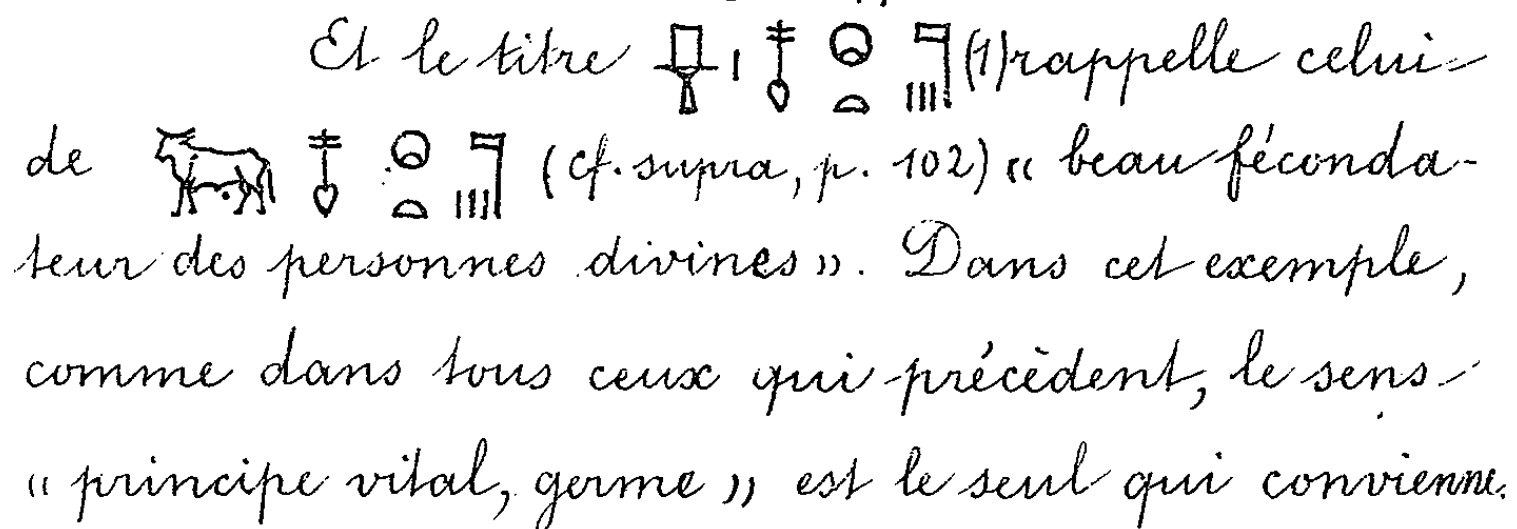 Et le titre 𓏤 𓄤 𓇹𓏏 𓊹𓏥 (1) rappelle celui
de 𓃒 𓄤 𓇹𓏏 𓊹𓏥 (cf. supra, p. 102) « beau féconda-
teur des personnes divines ». Dans cet exemple,
comme dans tous ceux qui précèdent, le sens
« principe vital, germe » est le seul qui convienne.